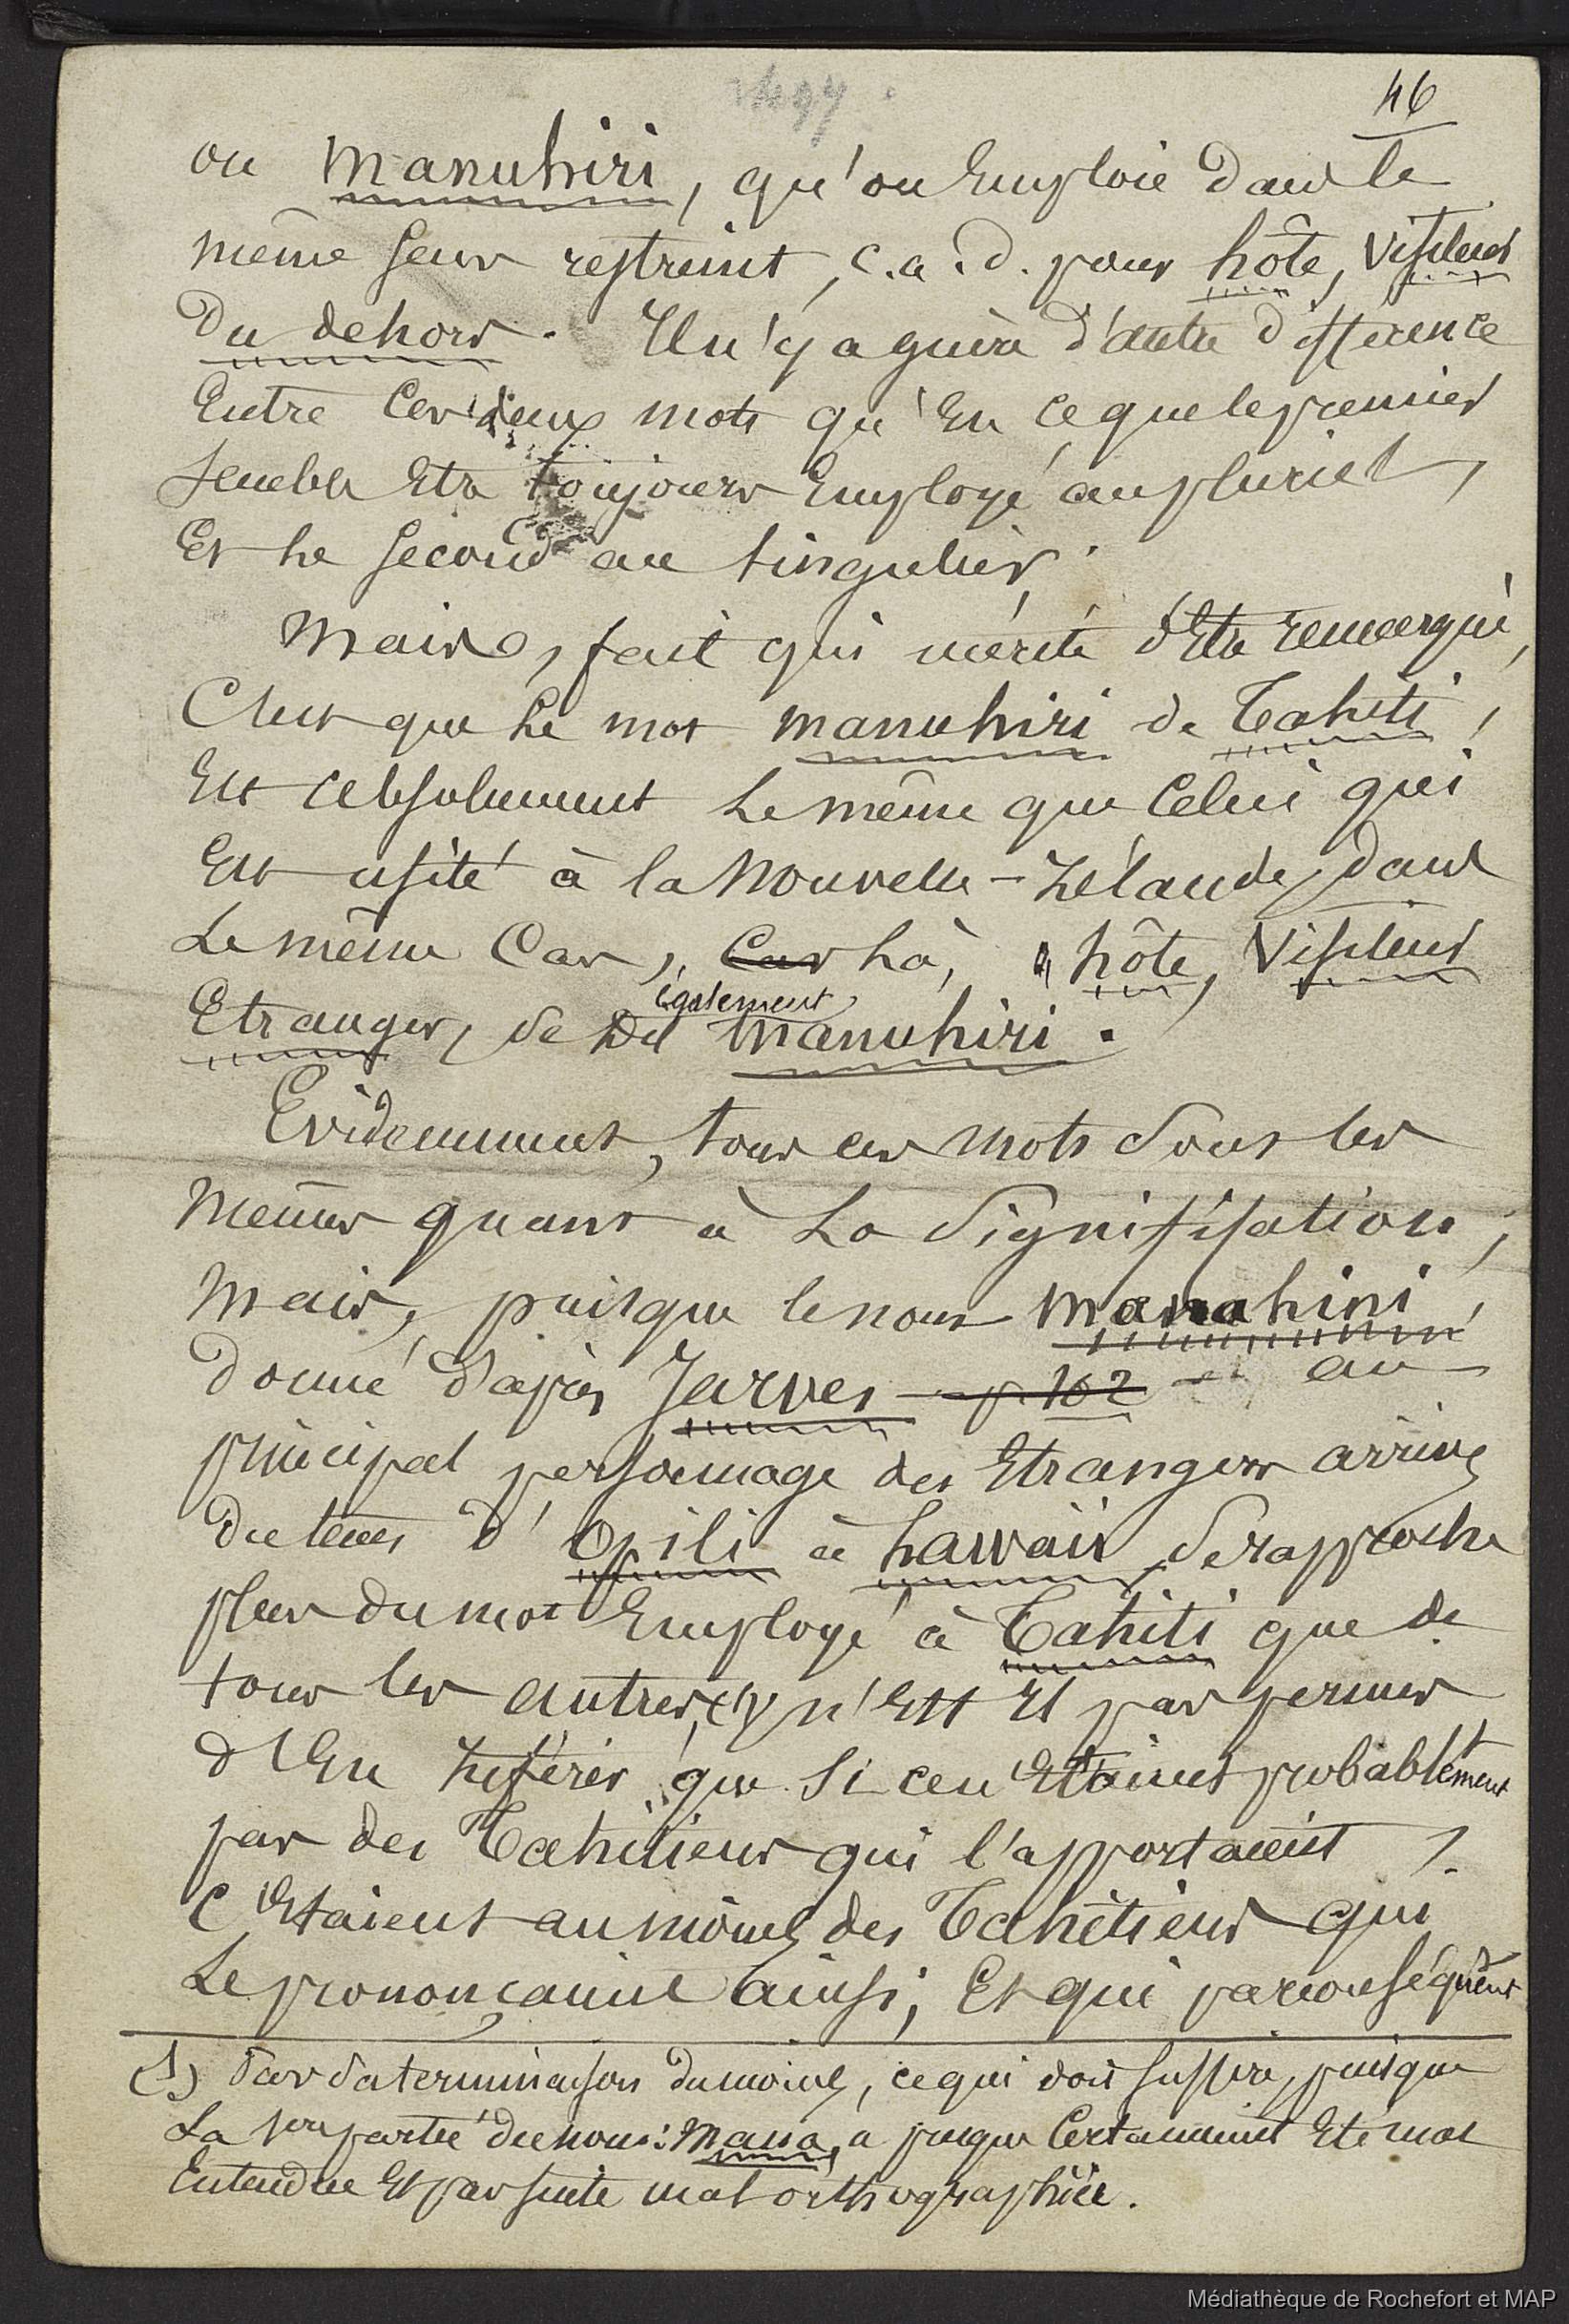 46
ou manuhiri, qu'on Emploie dans le
même sens restreint, c.a.d. pour hôte, visiteur
du dehors. Il n'y a guère d'autre différence
Entre ces deux mots qu'En ce que le premier
semble Etre toujours Employé au pluriel,
Et le second au singulier.
Mais, fait qui mérite d'Etre remarqué,
C'est que le mot manuhiri de Tahiti,
Est absolument le même que celui qui
Est usité à la Nouvelle-Zélande, dans
le même cas, car là, hôte, visiteur
Etranger, se dit également manuhiri.
Evidemment, tous ces mots sont les
mêmes quant à la signification;
mais, puisque le nom manahini,
donné d'après Jarves - p. 102 - au
principal personnage des Etrangers arrivés
du temps d'Opili à hawaii, se rapproche
plus du mot Employé à Tahiti que de
tous les autres, (1) n'Est il pas permis
d'En inférer que si ce n'Etaient probablement
pas des Tahitiens qui l'apportaient,
C'Etaient au moins des Tahitiens qui
le prononçaient ainsi; Et qui par conséquent
(1) Par sa terminaison du moins, ce qui doit suffire, puisque
la 1ere partie du nom: Mana, a presque certainement Eté mal
Entendue Et par suite mal orthographiée.
Médiathèque de Rochefort et MAP